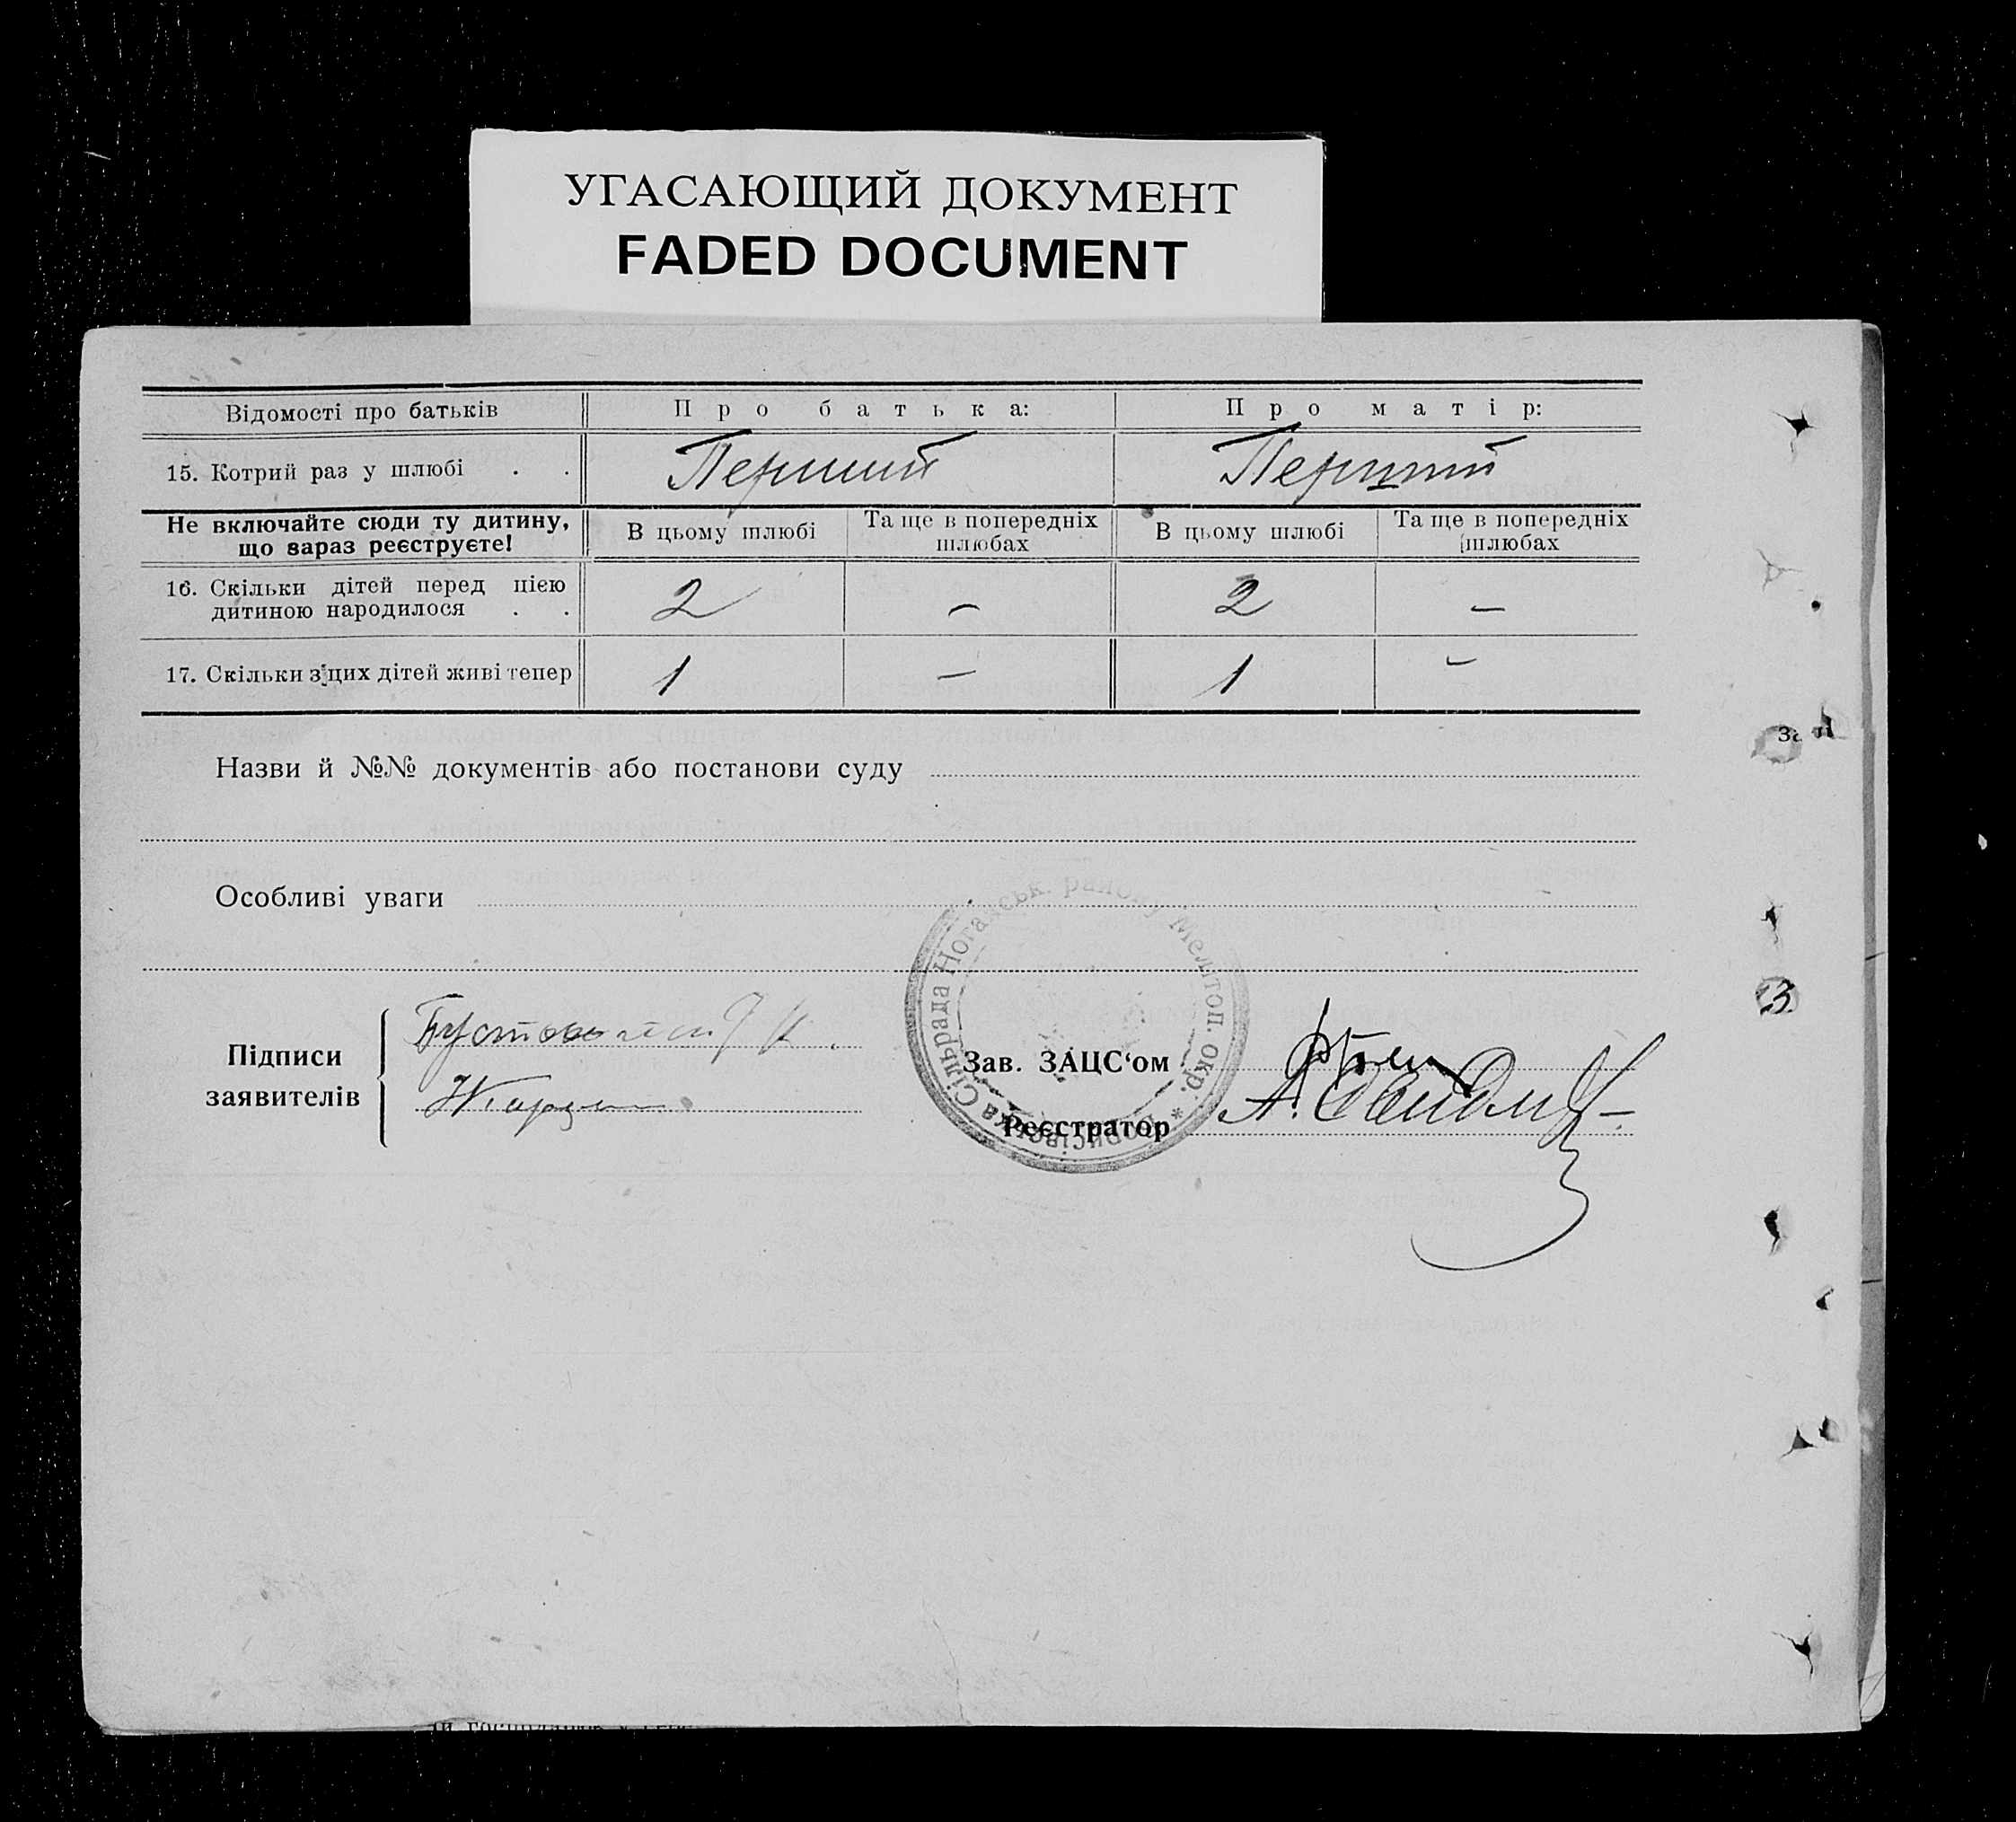 УГАСАЮЩИЙ ДОКУМЕНТ
FADED DOCUMENT
Відомості про батьків Про батька: Про матір:
15. Котрий раз у шлюбі . . Перший Перший
Не включайте сюди ту дитину, що зараз реєструєте! В цьому шлюбі Та ще в попередніх шлюбах В цьому шлюбі Та ще в попередніх шлюбах
16. Скільки дітей перед цією дитиною народилося . . 2 — 2 —
17. Скільки з цих дітей живі тепер 1 — 1 —
Назви й №№ документів або постанови суду
Особливі уваги
Підписи заявителів
Зав. ЗАЦС‘ом
Реєстратор
Сільрада Ногайськ. району Мелітоп. окр. *